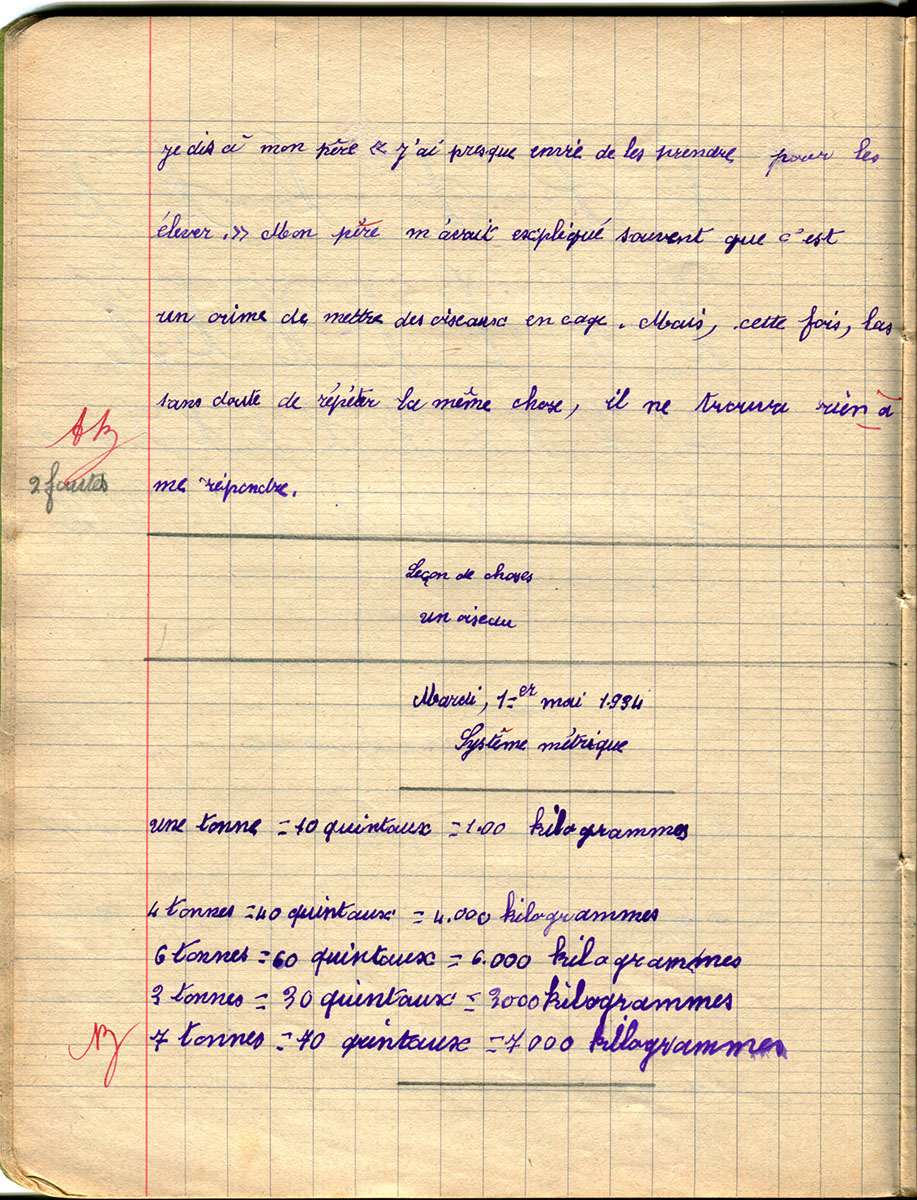 je dis à mon père « j'ai presque envie de les prendre pour les
élever. » Mon père m'avait expliqué souvent que c'est
un crime de mettre des oiseaux en cage. Mais, cette fois, las
sans doute de répéter la même chose, il ne trouva rien à
me répondre.
2 fautes
Leçon de choses
un oiseau
Mardi, 1er mai 1934
Système métrique
une tonne = 10 quintaux = 1.00 kilogrammes
4 tonnes = 40 quintaux = 4.000 kilogrammes
6 tonnes = 60 quintaux = 6.000 kilogrammes
3 tonnes = 30 quintaux = 3000 kilogrammes
7 tonnes = 70 quintaux = 7000 kilogrammes